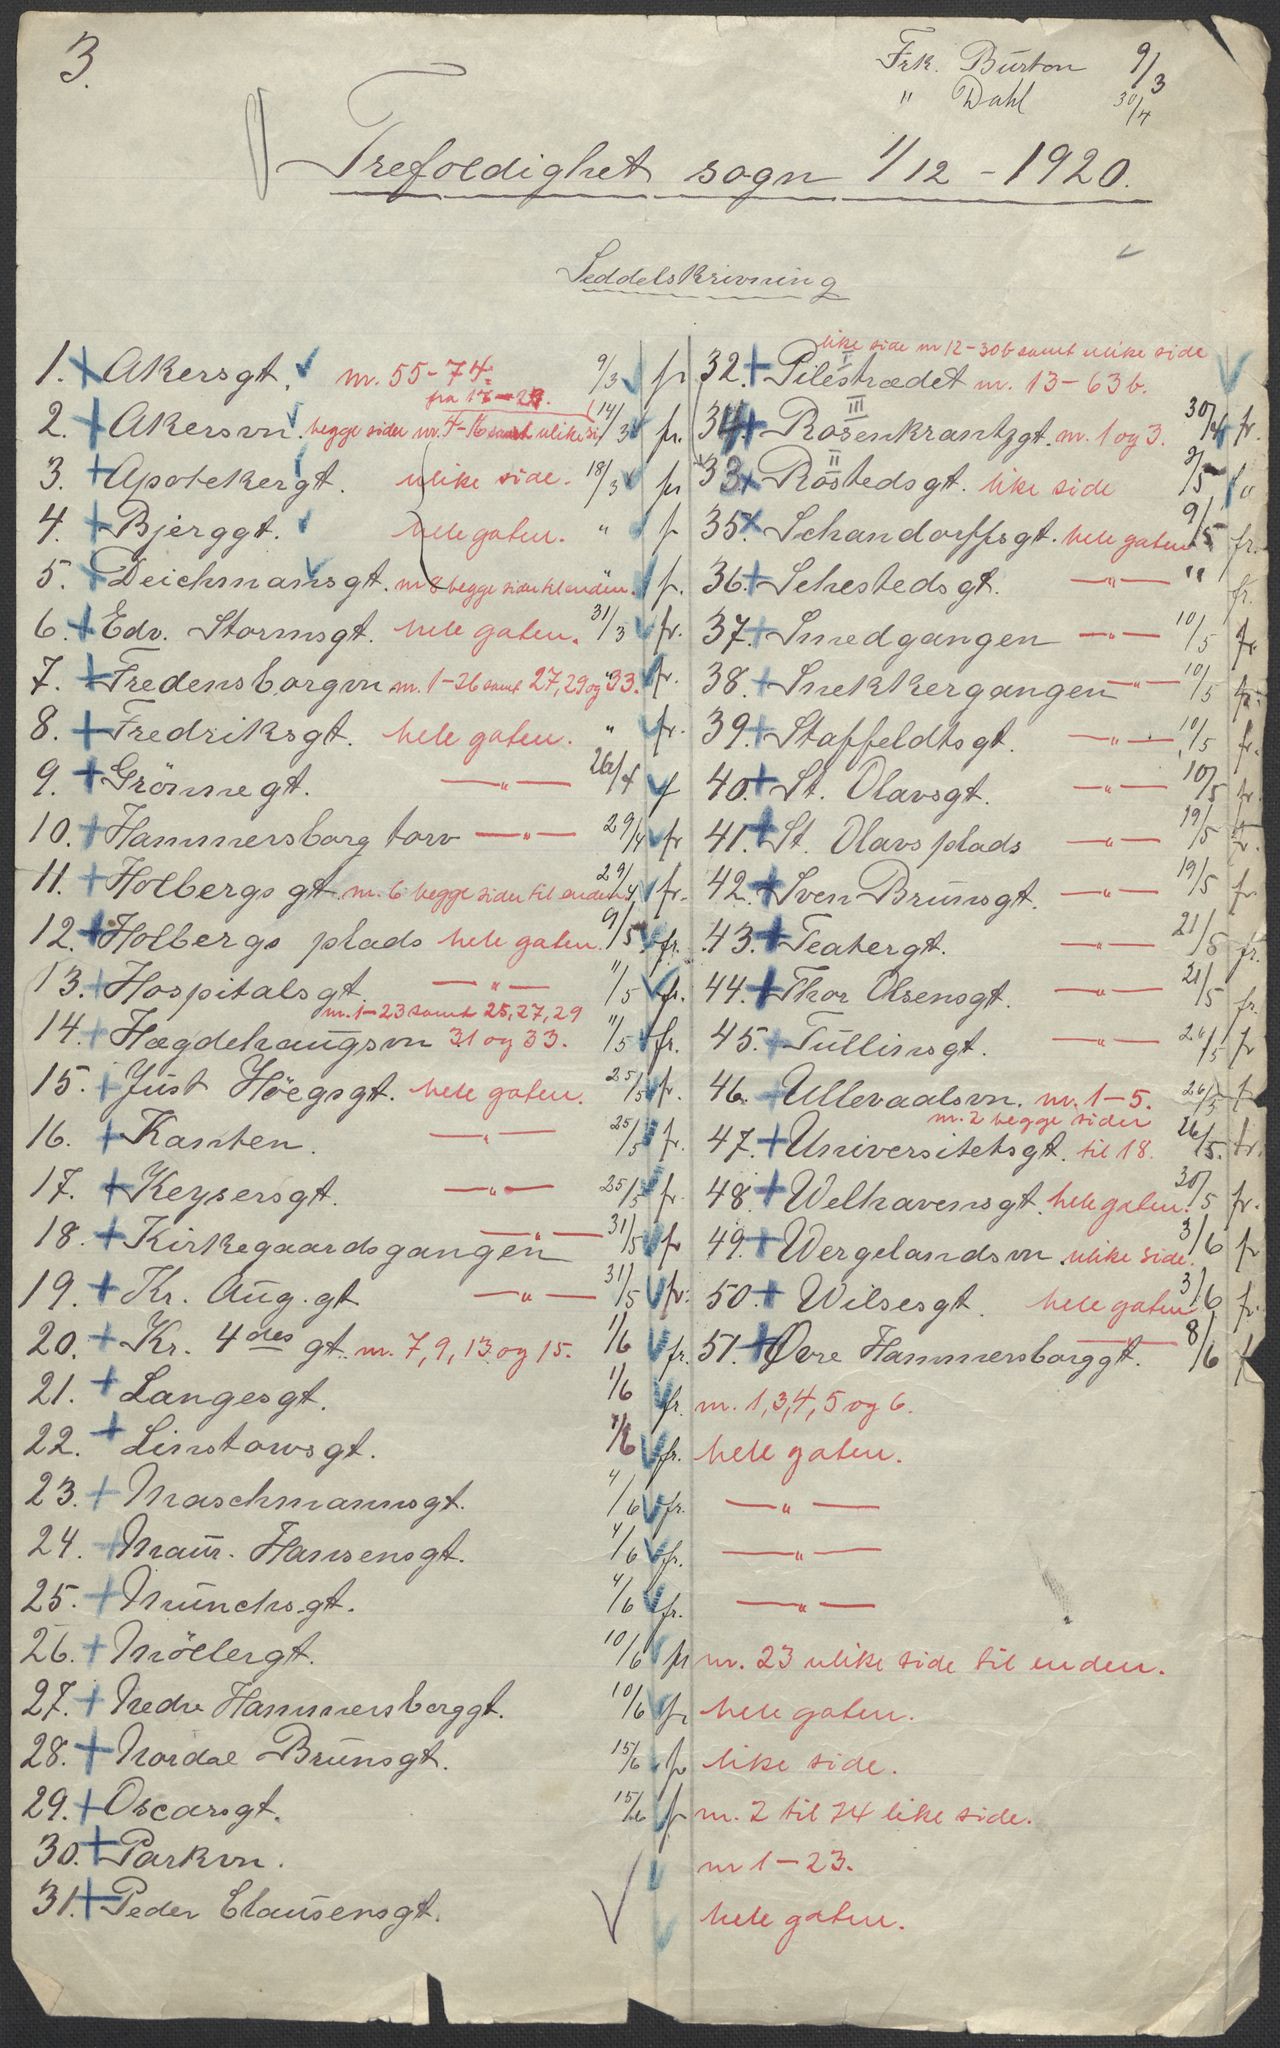 3.
Frk. Burton 9/3
" Dahl 30/4
Trefoldighet sogn 1/12 - 1920.
Seddelskrivning
1. + Akersgt. nr. 55-74. 9/3 fr
fra 17-23.
2. + Akersvn. begge sider nr. 4-16 samt ulike si 14/3 fr.
3. + Apotekergt. ulike side. 18/3 fr
4. + Bjerggt. hele gaten. " fr
5. + Deichmansgt. nr 2 begge sider til enden. fr.
6. + Edv. Stormsgt. hele gaten. 31/3 fr.
7. + Fredensborgvn nr. 1-26 samt 27, 29 og 33. " fr.
8. + Fredriksgt. hele gaten. " fr.
9. + Grönnegt. —"— 26/4 f
10. + Hammersborg torv —"— 29/4 fr
11. + Holbergs gt nr. 6 begge sider til enden 29/4 fr.
12. + Holbergs plads hele gaten. 9/5 fr.
13. + Hospitalsgt. —"— 11/5 fr.
nr. 1-23 samt 25, 27, 29
14. + Hægdehaugsvn 31 og 33. 11/5 fr.
15. + Just Höegsgt. hele gaten. 25/5 fr.
16. + Kanten. —"— 25/5 fr.
17. + Keysersgt. —"— 25/5 fr.
18. + Kirkegaardsgangen —"— 31/5 fr
19. + Kr. Aug. gt —"— 31/5 fr.
20. + Kr. 4des gt. nr. 7, 9, 13 og 15. 1/6 fr.
21. + Langesgt. 1/6 fr. nr. 1, 3, 4, 5 og 6.
22. + Linstowsgt. 1/6 fr. hele gaten.
23. + Maschmannsgt. 4/6 fr. —"—
24. + Maur. Hansensgt. 4/6 fr. —"—
25. + Munchs.gt. 4/6 fr. —"—
26. + Möllergt. 10/6 fr nr. 23 ulike side til enden.
27. + Nedre Hammersborggt. 10/6 fr hele gaten.
28. + Nordal Brunsgt. 15/6 fr like side.
29. + Oscarsgt. 15/6 fr nr. 2 til 74 like side.
30. + Parkvn. nr 1-23.
31. + Peder Clausensgt. hele gaten.
like side nr 12-30b samt ulike side
32. + Pilestrædet I nr. 13-63b.
34. + Rosenkrantzgt. III nr. 1 og 3. 30/4 fr.
33. x Rostedsgt. II like side 2/5 "
35. x Schandorffsgt. hele gaten 9/5 fr.
36. + Sehestedsgt. —"— " fr.
37. + Smedgangen —"— 10/5 fr.
38. + Snekkergangen —"— 10/5 fr.
39. + Staffeldtsgt. —"— 10/5 fr.
40. + St. Olavsgt. —"— 10/5 fr.
41. + St. Olavs plads —"— 19/5 fr.
42. + Sven Brunsgt. —"— 19/5 fr.
43. + Teatergt. —"— 21/5 fr.
44. + Thor Olsensgt. —"— 21/5 fr.
45. + Tullinsgt. —"— 26/5 fr
46. + Ullevaalsvn. nr. 1-5. 26/5 fr
nr. 2 begge sider
47. + Universitetsgt. til 18. 26/5. fr.
48. + Welhavensgt. hele gaten. 30/5 fr.
49. + Wergelandsvn. ulike side. 3/6 fr
50. + Wilsesgt. hele gaten 3/6 fr.
51. + Øvre Hammersborggt. —"— 8/6 f